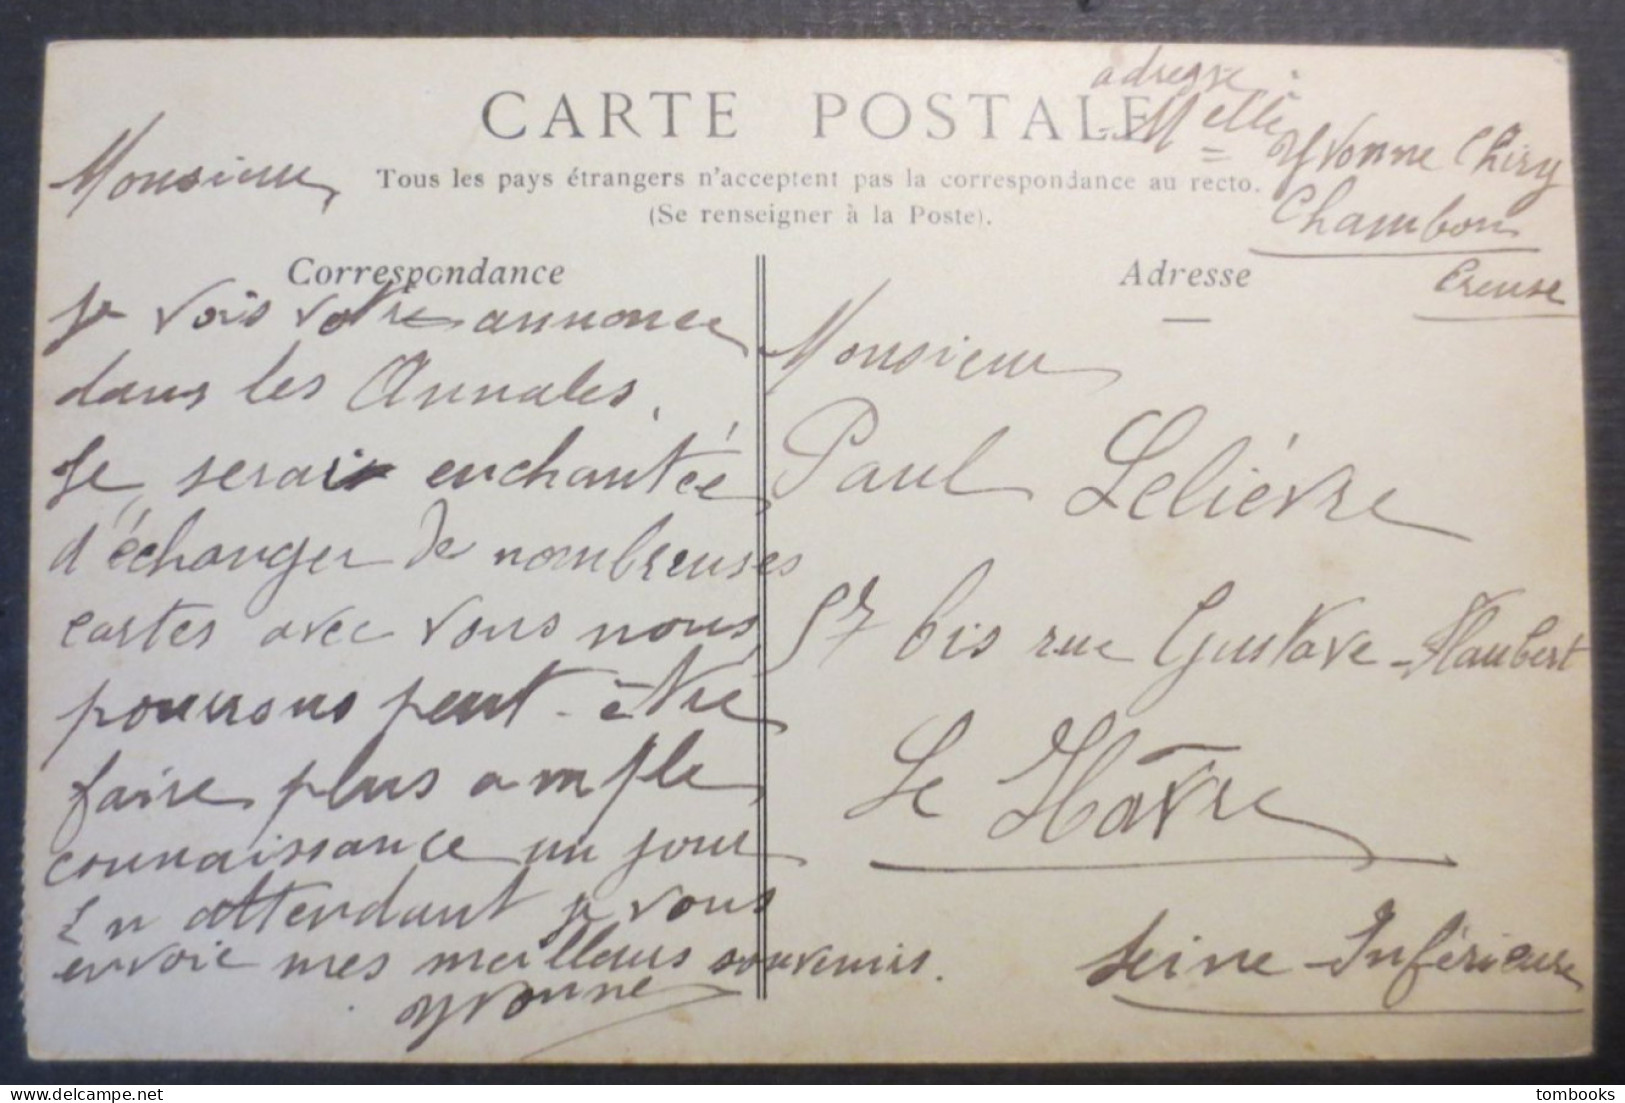 CARTE POSTALE
Tous les pays étrangers n'acceptent pas la correspondance au recto.
(Se renseigner à la Poste).
Correspondance
Monsieur
Je vois votre annonce
dans les Annales.
Je serais enchantée
d'échanger de nombreuses
cartes avec vous nous
pourrons peut-être
faire plus ample
connaissance un jour
En attendant je vous
envoie mes meilleurs souvenirs.
Yvonne
adresse
Melle Yvonne Chiry
Chambon
Creuse
Adresse
Monsieur
Paul Lelièvre
57 bis rue Gustave-Flaubert
Le Hâvre
Seine-Inférieure
tombooks